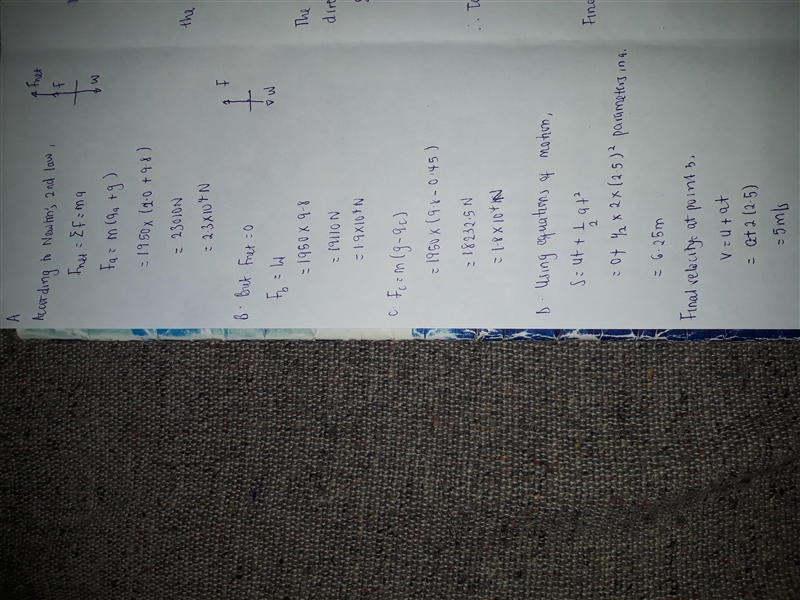 A
According to Newtons 2nd law,
Fnet = ΣF = ma
Fa = m(aa + g)
= 1950 x (2.0 + 9.8)
= 23010N
= 2.3 x 10⁴ N
Fnet
F
W
B. But Fnet = 0
Fb = W
= 1950 x 9.8
= 19110N
= 1.9 x 10⁴ N
F
W
C. Fc = m(g - ac)
= 1950 x (9.8 - 0.45)
= 18232.5N
= 1.8 x 10⁴ N
D. Using equations of motion,
S = ut + 1/2 at²
= 0 + 1/2 x 2 x (2.5)² parameters in a.
= 6.25m
Final velocity at point b,
V = u + at
= 0 + 2(2.5)
= 5m/s
the
The
∴